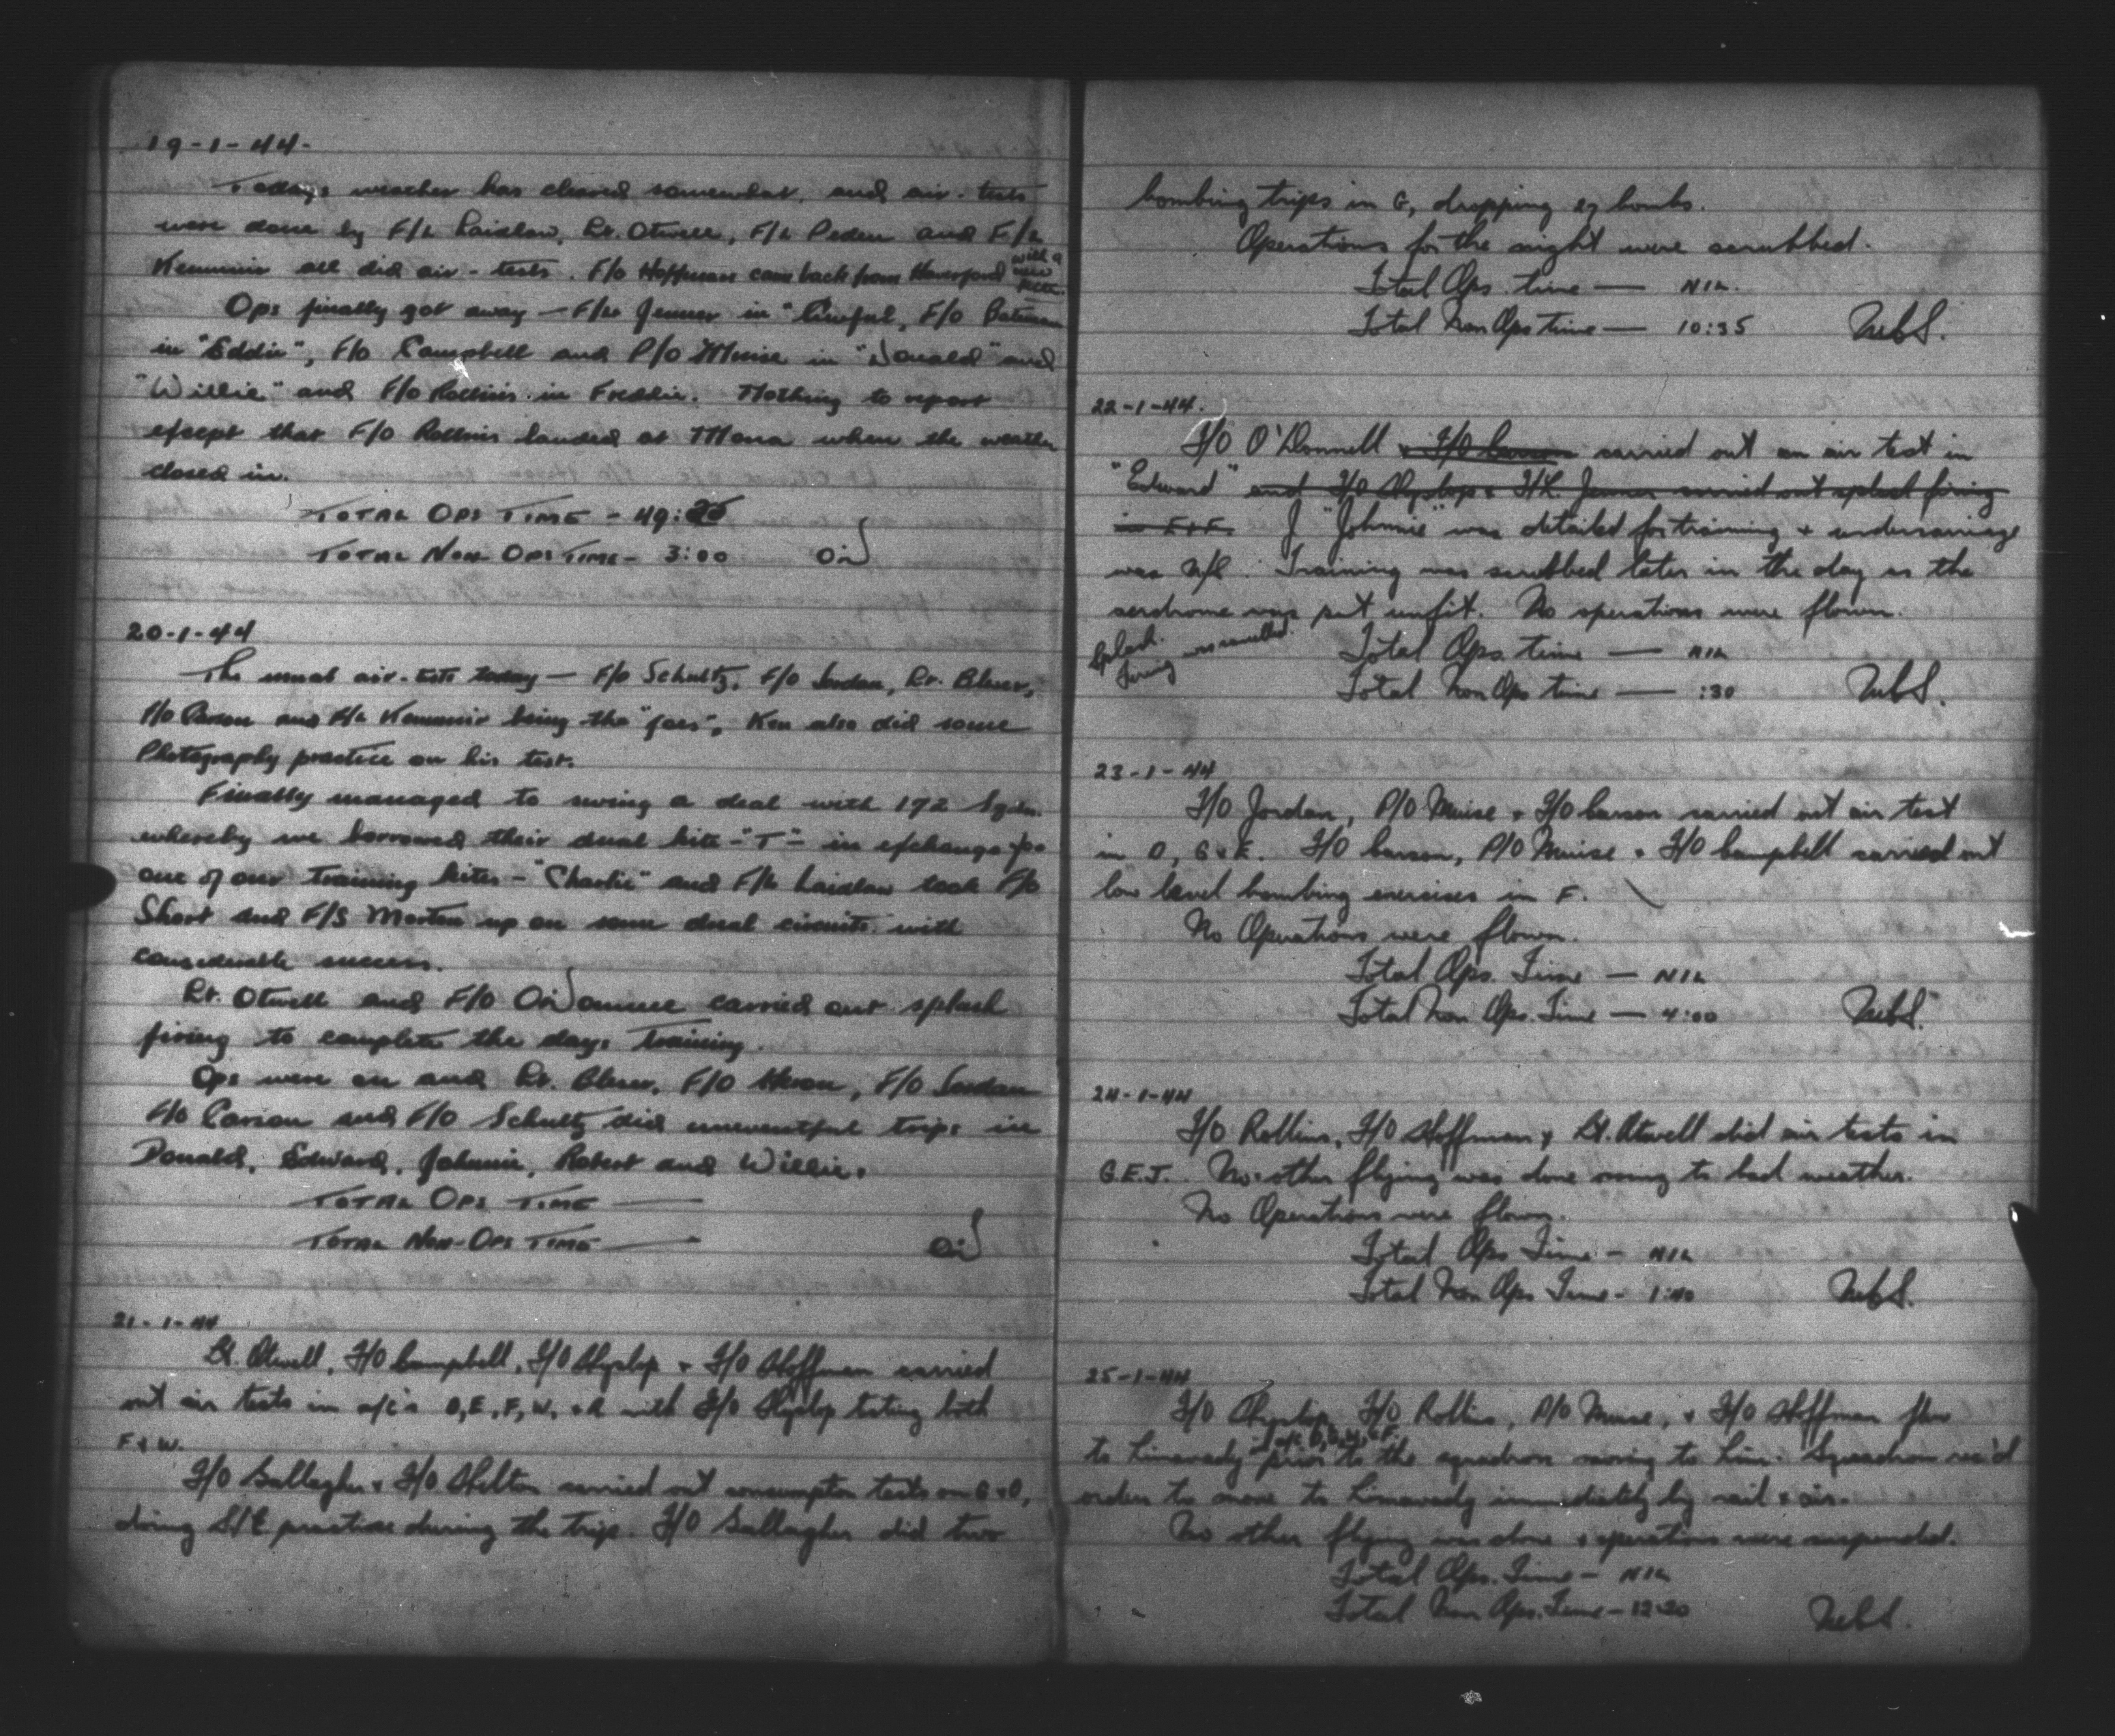 19-1-44.
Todays weather has cleared somewhat, and air-tests
were done by F/L Laidlaw, Lt. Otwell, F/L Peden and F/L
Kemmir all did air-tests. F/O Hoffman came back from Haverford with a new
Ops finally got away — F/L Jenner in "Lawful, F/O Bateman
in "Eddie", F/O Campbell and P/O Muise in "Donald" and
"Willie" and F/O Rollins in Freddie. Nothing to report
except that F/O Rollins landed at Mona when the weather
closed in.
TOTAL OPS TIME - 49:
TOTAL NON OPS TIME - 3:00
20-1-44
The usual air-tests today — F/O Schultz, F/O Jordan, Lt. Bluer,
F/O Carson and F/L Kemmir being the "joes". Ken also did some
Photography practice on his test.
Finally managed to swing a deal with 172 Sqdn.
whereby we borrowed their dual kite - "T" - in exchange for
one of our training kites - "Charlie" and F/L Laidlaw took F/O
Short and F/S Morton up on some dual circuits with
considerable success.
Lt. Otwell and F/O carried out splash
firing to complete the days training.
Ops were on and Lt. Bluer, F/O Heron, F/O Jordan
F/O Carson and F/O Schultz did uneventful trips in
Donald, Edward, Johnnie, Robert and Willie.
TOTAL OPS TIME —
TOTAL NON-OPS TIME —
21-1-44
Lt. Otwell, F/O Campbell, F/O Hyslop + F/O Hoffman carried
out air tests in a/c's D, E, F, W, + R with F/O Hyslop testing both
F & W.
F/O Gallagher + F/O Shelton carried out consumption tests on G + O,
doing S/E practise during the trip. F/O Gallagher did two
bombing trips in G, dropping 27 bombs.
Operations for the night were scrubbed.
Total Ops. time — NIL.
Total Non Ops time — 10:35
22-1-44.
F/O O'Donnell + F/O Carson carried out an air test in
"Edward" and F/O Hyslop + F/L. Jenner carried out splash firing
in E + F. J "Johnnie" was detailed for training + undercarriage
was U/S. Training was scrubbed later in the day as the
aerdrome was put unfit. No operations were flown.
Splash Firing was cancelled.
Total Ops. time — NIL
Total Non Ops time — :30
23-1-44
F/O Jordan, P/O Muise + F/O Carson carried out air test
in O, G + E. F/O Carson, P/O Muise + F/O Campbell carried out
low level bombing exercises in F.
No Operations were flown.
Total Ops. Time — NIL
Total Non Ops. Time — 4:00
24-1-44
F/O Rollins, F/O Hoffman + Lt. Otwell did air tests in
G.E.J. No other flying was done owing to bad weather.
No Operations were flown.
Total Ops Time - NIL
Total Non Ops Time - 1:40
25-1-44
F/O Hyslop, F/O Rollins, P/O Muise, + F/O Hoffman flew
to Limavady prior to the squadron moving to Lim. Squadron rec'd
orders to move to Limavady immediately by rail + air.
No other flying was done + operations were suspended.
Total Ops. Time - NIL
Total Non Ops. Time - 12:20